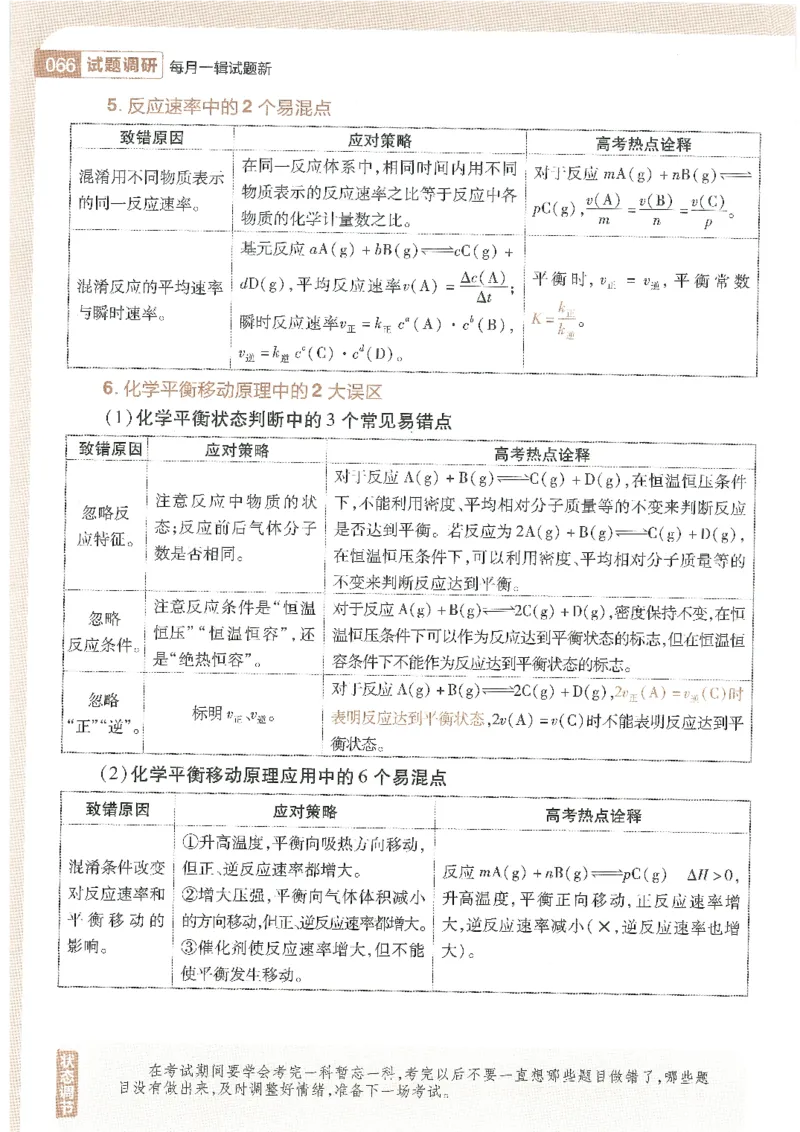 066 试题调研 每月一辑试题新
5. 反应速率中的2个易混点
致错原因 应对策略 高考热点诠释
混淆用不同物质表示
的同一反应速率。
在同一反应体系中,相同时间内用不同
物质表示的反应速率之比等于反应中各
物质的化学计量数之比。
对于反应 mA(g)+nB(g)⇌
pC(g),v(A)/m=v(B)/n=v(C)/p。
混淆反应的平均速率
与瞬时速率。
基元反应 aA(g)+bB(g)⇌cC(g)+
dD(g),平均反应速率v(A)=Δc(A)/Δt;
瞬时反应速率v正=k正 c^a(A)·c^b(B),
v逆=k逆 c^c(C)·c^d(D)。
平衡时,v正 = v逆,平衡常数
K=k正/k逆。
6. 化学平衡移动原理中的2大误区
(1)化学平衡状态判断中的3个常见易错点
致错原因 应对策略 高考热点诠释
忽略反
应特征。
注意反应中物质的状
态;反应前后气体分子
数是否相同。
对于反应 A(g)+B(g)⇌C(g)+D(g),在恒温恒压条件
下,不能利用密度、平均相对分子质量等的不变来判断反应
是否达到平衡。若反应为2A(g)+B(g)⇌C(g)+D(g),
在恒温恒压条件下,可以利用密度、平均相对分子质量等的
不变来判断反应达到平衡。
忽略
反应条件。
注意反应条件是“恒温
恒压”“恒温恒容”,还
是“绝热恒容”。
对于反应A(g)+B(g)⇌2C(g)+D(g),密度保持不变,在恒
温恒压条件下可以作为反应达到平衡状态的标志,但在恒温恒
容条件下不能作为反应达到平衡状态的标志。
忽略
“正”“逆”。
标明 v正、v逆。
对于反应A(g)+B(g)⇌2C(g)+D(g),2v正(A)=v逆(C)时
表明反应达到平衡状态,2v(A)=v(C)时不能表明反应达到平
衡状态。
(2)化学平衡移动原理应用中的6个易混点
致错原因 应对策略 高考热点诠释
混淆条件改变
对反应速率和
平衡移动的
影响。
①升高温度,平衡向吸热方向移动,
但正、逆反应速率都增大。
②增大压强,平衡向气体体积减小
的方向移动,但正、逆反应速率都增大。
③催化剂使反应速率增大,但不能
使平衡发生移动。
反应 mA(g)+nB(g)⇌pC(g) ΔH>0,
升高温度,平衡正向移动,正反应速率增
大,逆反应速率减小(×,逆反应速率也增
大)。
状态调节
在考试期间要学会考完一科暂忘一科,考完以后不要一直想哪些题目做错了,哪些题
目没有做出来,及时调整好情绪,准备下一场考试。